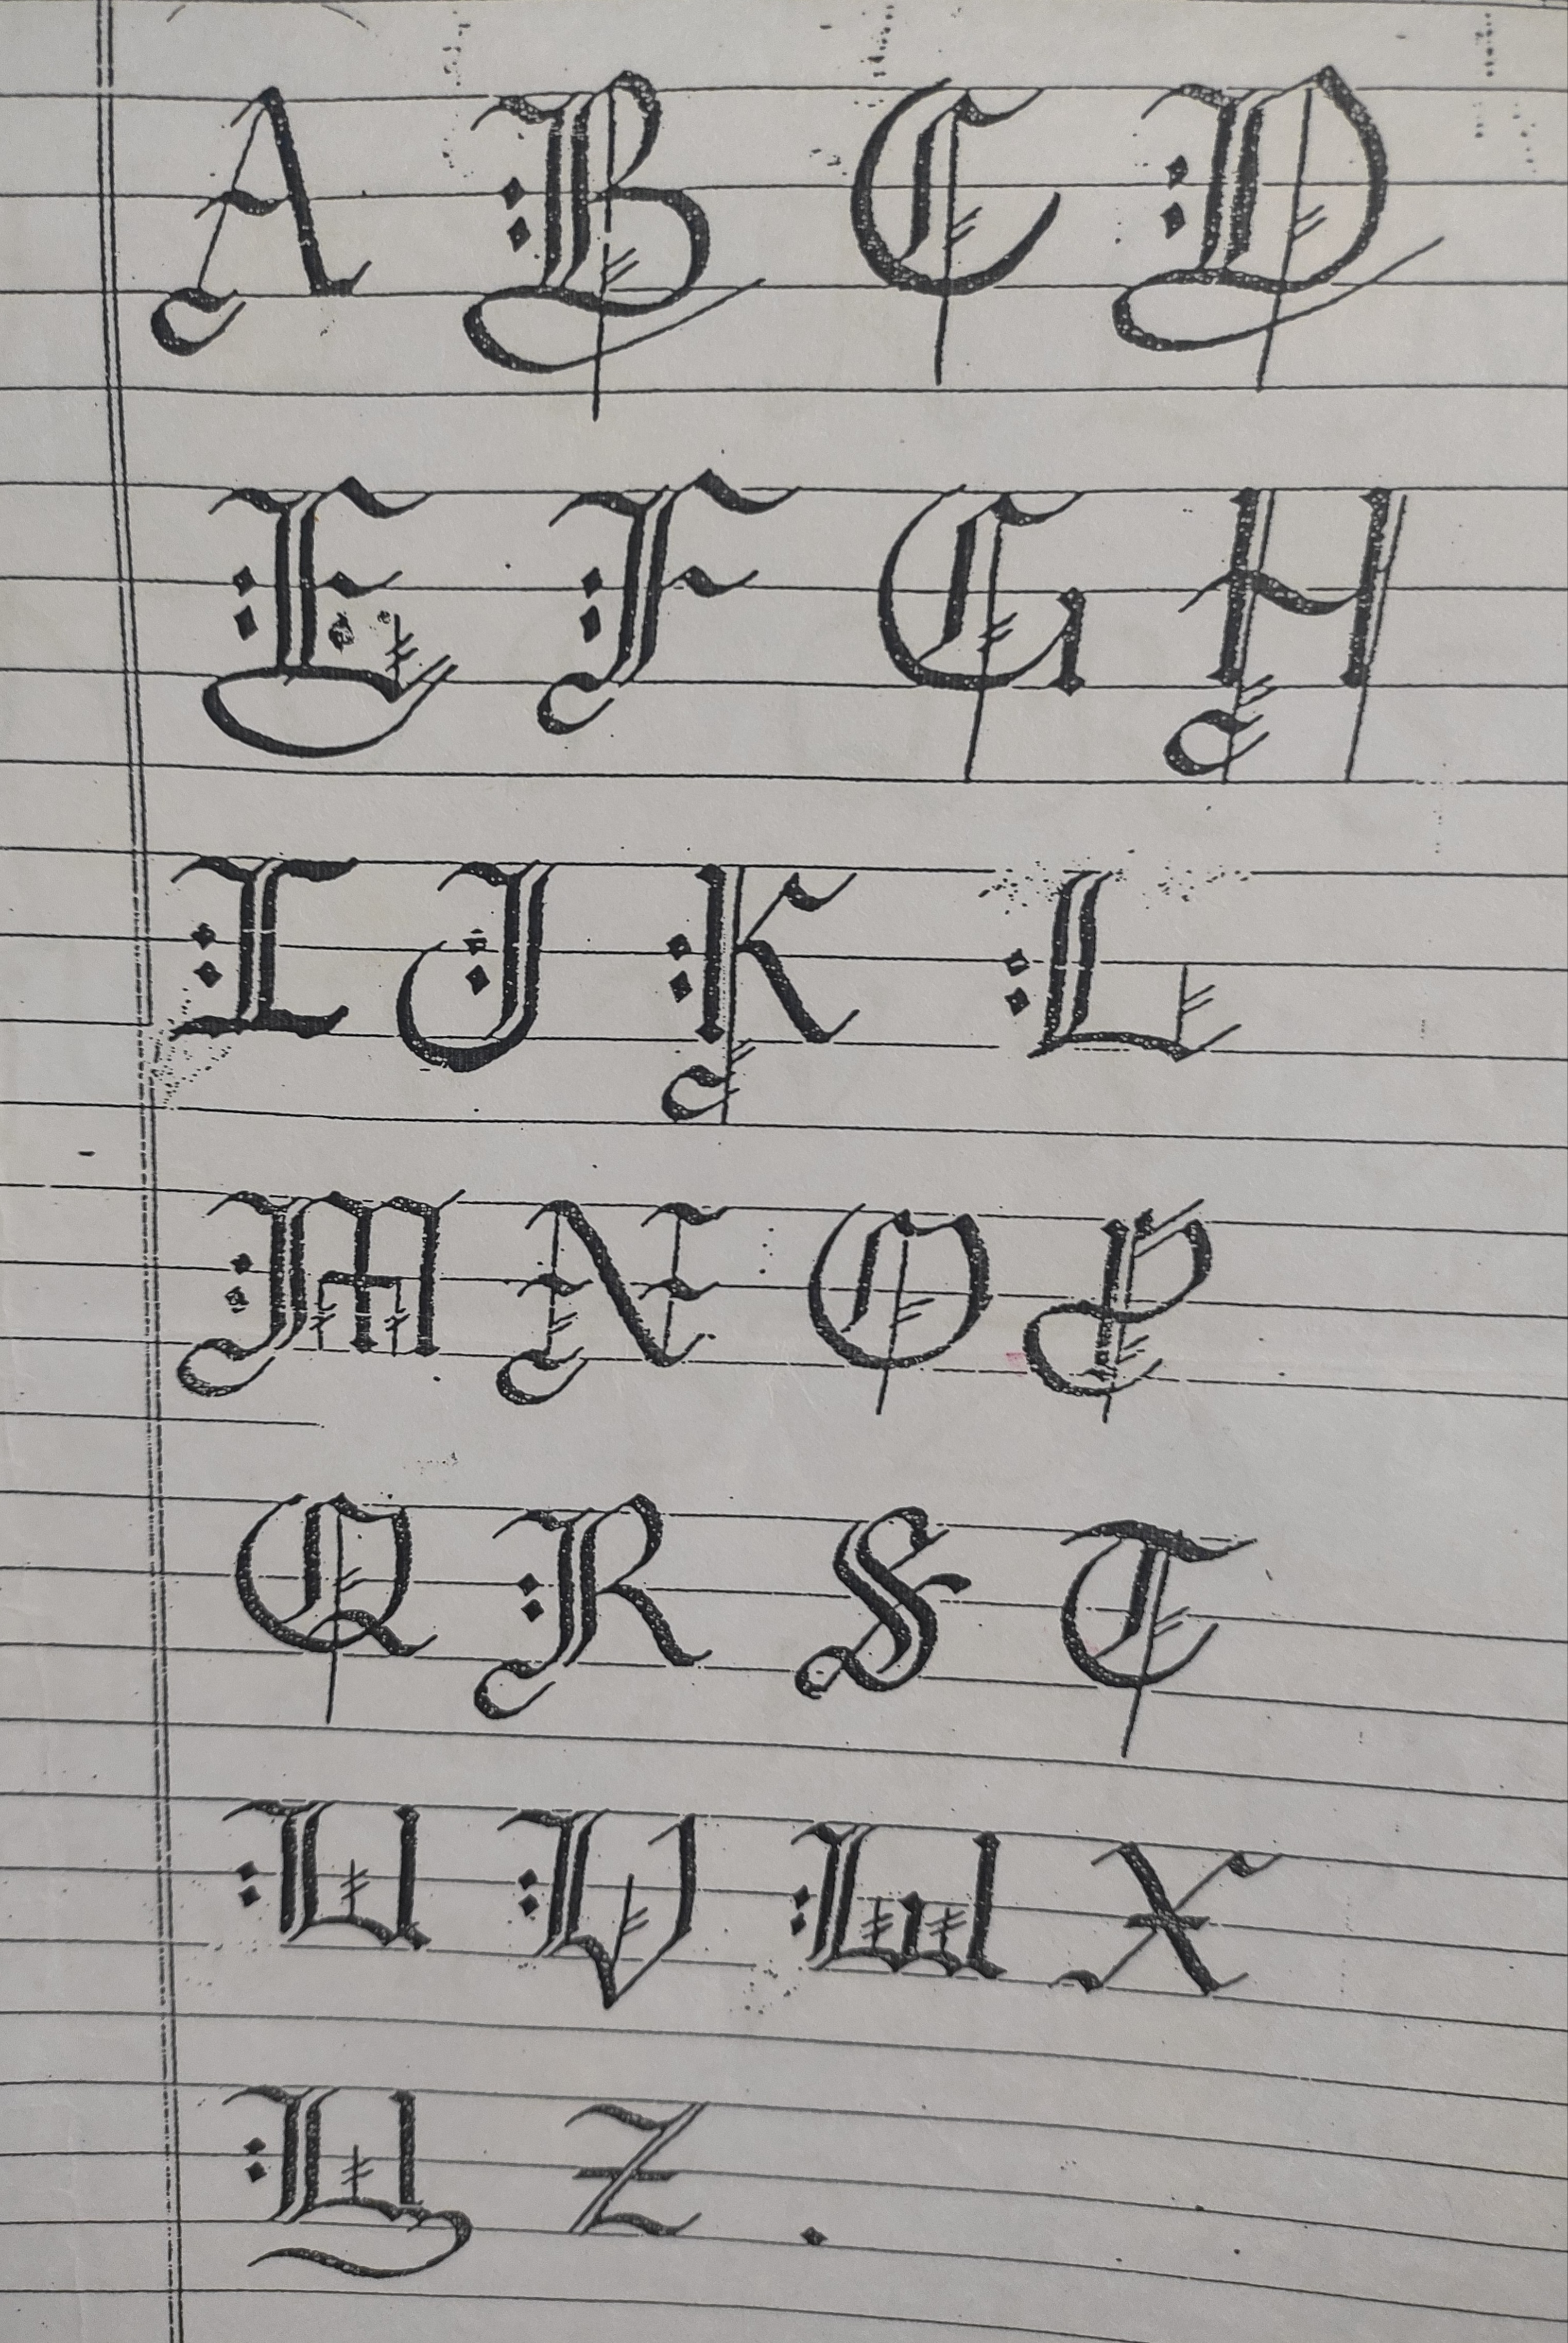 A B C D
E F G H
I J K L
M N O P
Q R S T
U V W X
Y Z .